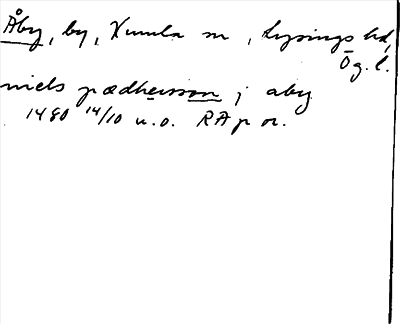 Åby, by, Kumla sn, Lysings hd,
Ög. l.
niels pædhersson j aby
1480 14/10 u.o. RAp or.